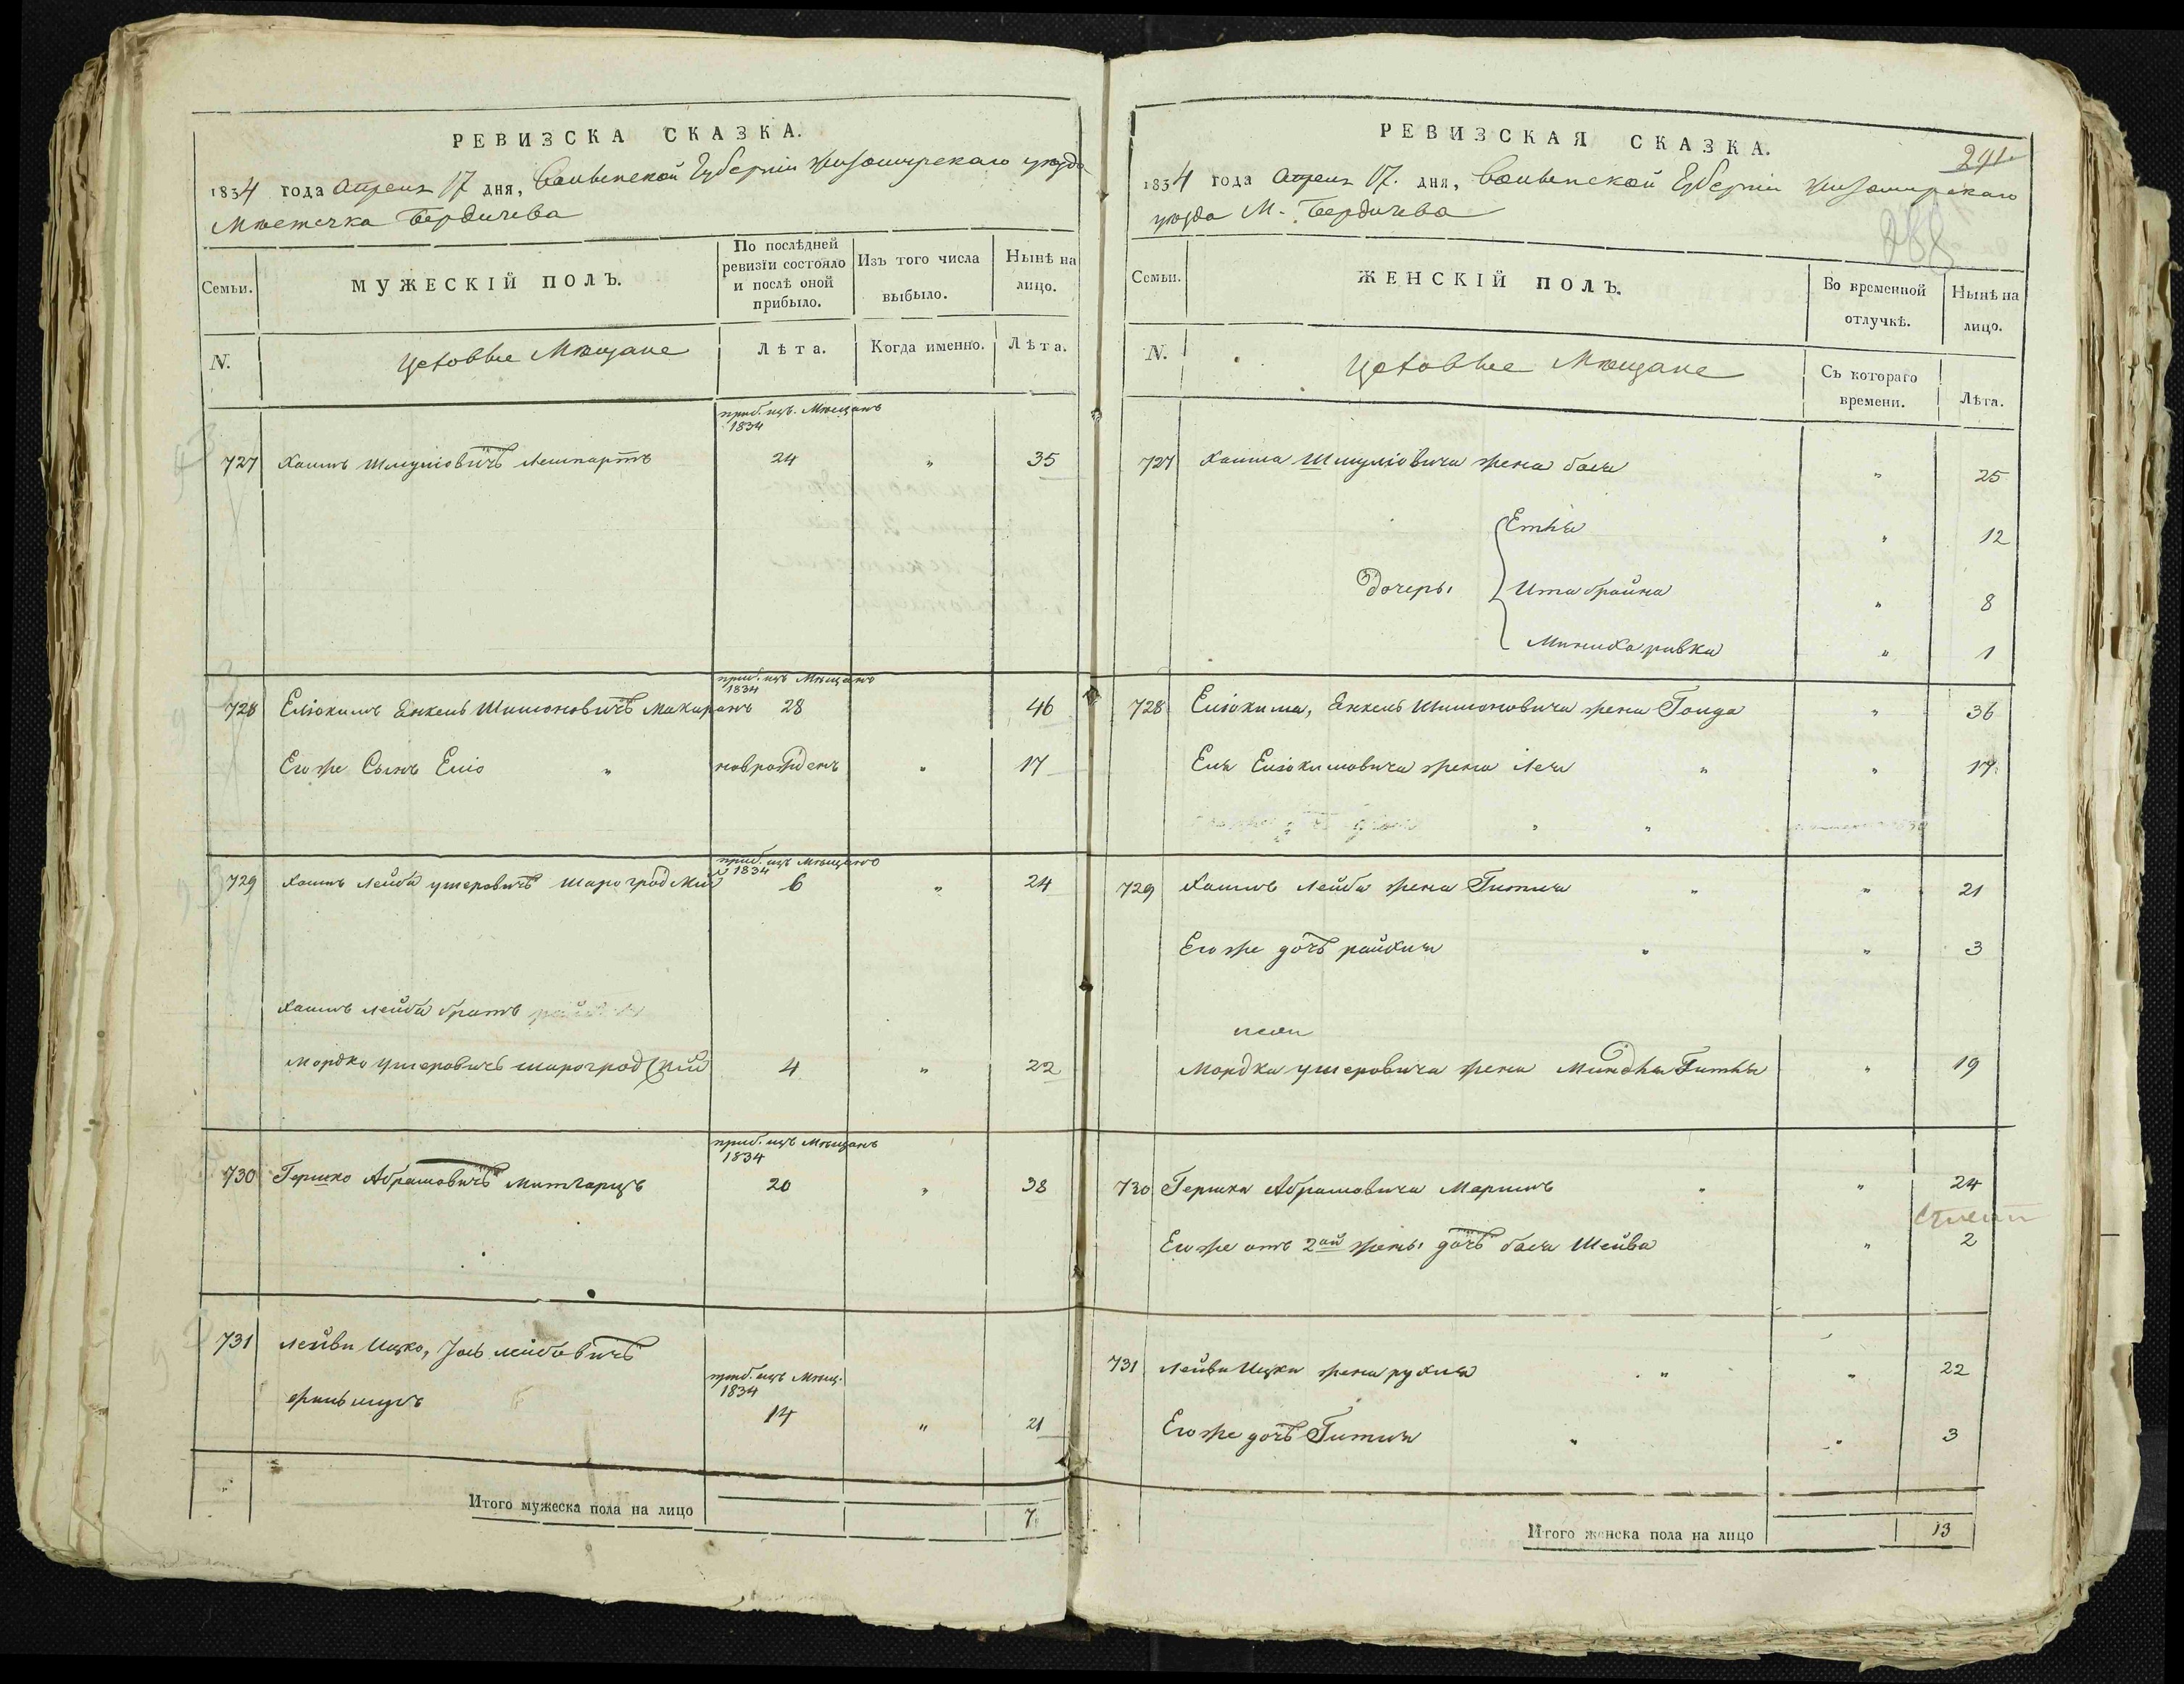 РЕВИЗСКА СКАЗКА.
1834 года Апреля 17 дня, Волынской Губернии Житомирскаго уезда
Местечка Бердичева
Семьи.
МУЖЕСКІЙ ПОЛЪ.
По послѣдней ревизіи состояло и послѣ оной прибыло.
Изъ того числа выбыло.
Нынѣ на лицо.
N.
Цеховые Мещане
Лѣта.
Когда именно.
Лѣта.
приб. изъ Мещанъ
1834
727 Хаимъ Шмуліовичъ 24 " 35
приб. изъ Мещанъ
1834
728 Еліокимъ Янкель Шимоновичъ 28 46
Его же Сынъ Еліо " новрожденъ " 17
приб. изъ Мещанъ
1834
729 Хаимъ Лейба Ушеровичъ Шарогродскій 6 " 24
Хаимъ Лейба братъ
Мордко Ушеровичъ Шарогродскій 4 " 22
приб. изъ Мещанъ
1834
730 Гершко Абрамовичъ 20 " 38
731 Лейви Ицко, Іось Лейбовичъ
приб. изъ Мещ.
1834
14 " 21
Итого мужеска пола на лицо 7
РЕВИЗСКАЯ СКАЗКА.
291
1834 года Апреля 17. дня, Волынской Губерніи Житомирскаго
уезда М. Бердичева
288
Семьи.
ЖЕНСКІЙ ПОЛЪ.
Во временной отлучкѣ.
Нынѣ на лицо.
N.
Цеховые Мещане
Съ котораго времени.
Лѣта.
727 Хаима Шмуліовича жена Бася " 25
Етля " 12
Дочеры Ита Брайна " 8
Ривка " 1
728 Еліокима, Янкель Шимоновича жена Голда " 36
Еля Еліокимовича жена Лея " " 17
729 Хаимъ Лейба жена Гитля " " 21
Его же дочъ Райхля " " 3
Мордка Ушеровича жена Миндля Гитля " 19
730 Гершка Абрамовича " " 24
Его же отъ 2ой жены дочъ Бася Шейва " 2
731 Лейви Ицка жена Рухля " " 22
Его же дочъ Гитля " " 3
Итого женска пола на лицо 13